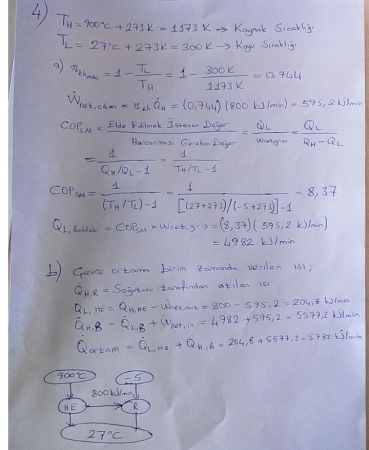 4) TH = 900°C + 273 K = 1173 K → Kaynak Sıcaklığı
TL = 27°C + 273 K = 300 K → Kuyu Sıcaklığı
a) ηth,max = 1 - TL/TH = 1 - 300 K/1173 K = 0,744
Ẇnet,çıkan = ηth Q̇H = (0,744) (800 kJ/min) = 595,2 kJ/min
COPSM = Elde Edilmek İstenen Değer/Harcanması Gereken Değer = Q̇L/Wnet,giren = QL/QH - QL
= 1/QH/QL - 1 = 1/TH/TL - 1
COPSM = 1/(TH/TL) - 1 = 1/[(27+273)/(-5+273)] - 1 = 8,37
QL,Buzdolabı = COPSM × Wnet,giriş = (8,37)(595,2 kJ/min)
= 4982 kJ/min
b) Çevre ortama birim zamanda verilen ısı;
Q̇H,R = Soğutucu tarafından atılan ısı
Q̇L,HE = Q̇H,HE - Ẇnet,out = 800 - 595,2 = 204,8 kJ/min
Q̇H,R - Q̇L,R + Ẇnet,in = 4982 + 595,2 = 5577,2 kJ/min
Q̇ortam = Q̇L,HE + Q̇H,R = 204,8 + 5577,2 = 5782 kJ/min
900°C -5
800 kJ/min
HE R
27°C